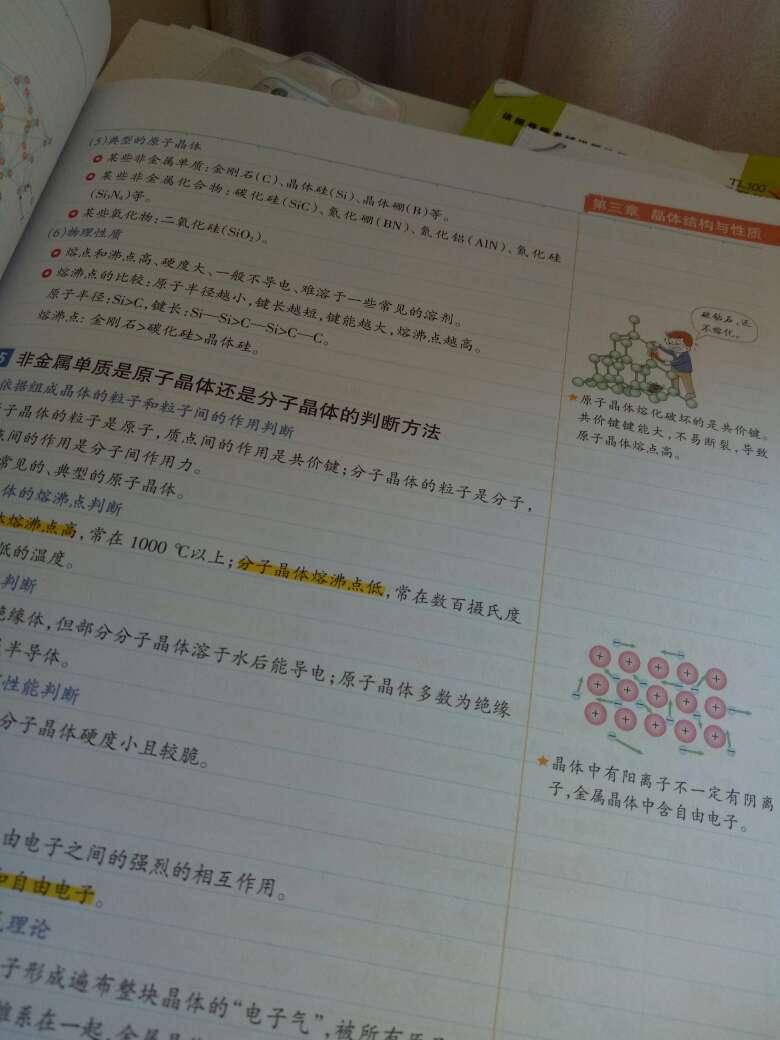 (5)典型的原子晶体
某些非金属单质:金刚石(C)、晶体硅(Si)、晶体硼(B)等。
某些非金属化合物:碳化硅(SiC)、氮化硼(BN)、氮化铝(AlN)、氮化硅
(Si₃N₄)等。
某些氧化物:二氧化硅(SiO₂)。
(6)物理性质
熔点和沸点高、硬度大、一般不导电、难溶于一些常见的溶剂。
熔沸点的比较:原子半径越小,键长越短,键能越大,熔沸点越高。
原子半径:Si>C,键长:Si—Si>C—Si>C—C。
熔沸点:金刚石>碳化硅>晶体硅。
5 非金属单质是原子晶体还是分子晶体的判断方法
依据组成晶体的粒子和粒子间的作用判断
子晶体的粒子是原子,质点间的作用是共价键;分子晶体的粒子是分子,
点间的作用是分子间作用力。
常见的、典型的原子晶体。
体的熔沸点判断
体熔沸点高,常在1000 ℃以上;分子晶体熔沸点低,常在数百摄氏度
低的温度。
判断
绝缘体,但部分分子晶体溶于水后能导电;原子晶体多数为绝缘
半导体。
性能判断
分子晶体硬度小且较脆。
由电子之间的强烈的相互作用。
和自由电子。
理论
子形成遍布整块晶体的“电子气”,被所有原
维系在一起,金属晶
第三章 晶体结构与性质
破钻石,还
不熔化。
原子晶体熔化破坏的是共价键。
共价键键能大,不易断裂,导致
原子晶体熔点高。
晶体中有阳离子不一定有阴离
子,金属晶体中含自由电子。